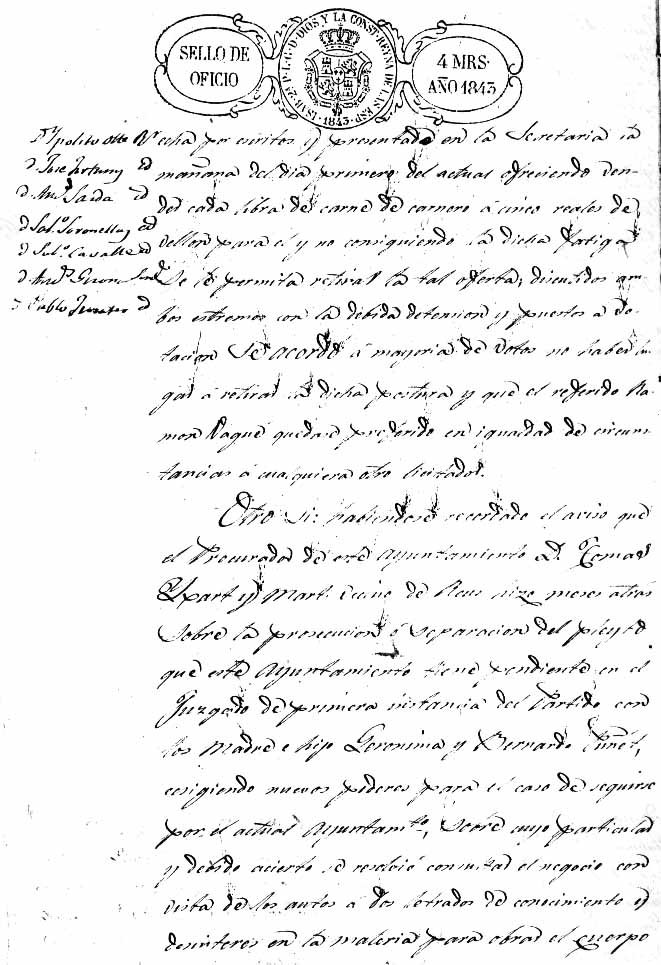 SELLO DE
OFICIO
ISAB. 2ª P. L. G. D. DIOS Y LA CONST. REYNA DE LAS ESP.
1843
4 MRS.
AÑO 1843
d. José Fortuny id
d. Salv. Cavallé id
d. Pablo
echa por escritos y presentada en la Secretaria la
mañana del dia primero del actual ofreciendo ven-
der cada libra de carne de carnero á cinco reales de
vellon para él y no consiguiendo la dicha fatiga
se le permita retirar la tal oferta; discutidos am-
bos estremos con la debida detension y puestos a vo-
tacion Se acordó á mayoria de votos no haber lu-
gar á retirar la dicha postura y que el referido Ra-
mon Pagué quedase preferido en igualdad de circuns-
tancias á cualquiera otro licitador.
Otro si: habiendose recordado el aviso que
el Procurador de este Ayuntamiento D. Tomas
y Martí vecino de Reus hizo meses atras
sobre la prosecucion ó separacion del pleyto
que este Ayuntamiento tiene pendiente en el
Juzgado de primera instancia del Partido con
los Madre e hijo Geronima y Bernardo
ecsigiendo nuevos poderes para el caso de seguirse
por el actual Ayuntamto, sobre cuyo particular
y debido acierto se resolvió consultar el negocio con
vista de los autos á dos letrados de conocimiento y
desinteres en la materia para obrar el cuerpo